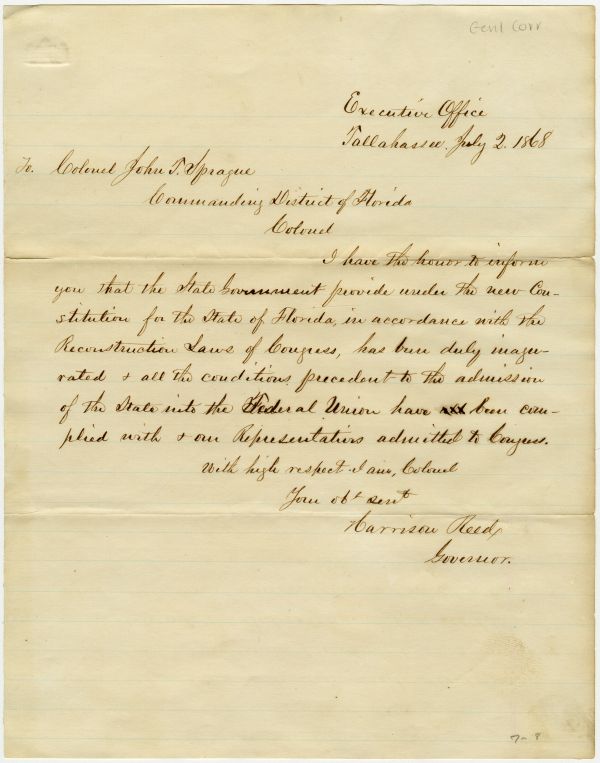 Genl Corr
Executive Office
Tallahassee, July 2. 1868
To. Colonel John T. Sprague
Commanding District of Florida
Colonel
I have the honor to inform
you that the State Government provide under the new Con-
stitution for the State of Florida, in accordance with the
Reconstruction Laws of Congress, has been duly inagu-
rated & all the conditions precedent to the admission
of the State into the Federal Union have been com-
plied with & our Representatives admitted to Congress.
With high respect I am, Colonel
Your obt servt
Harrison Reed,
Governor.